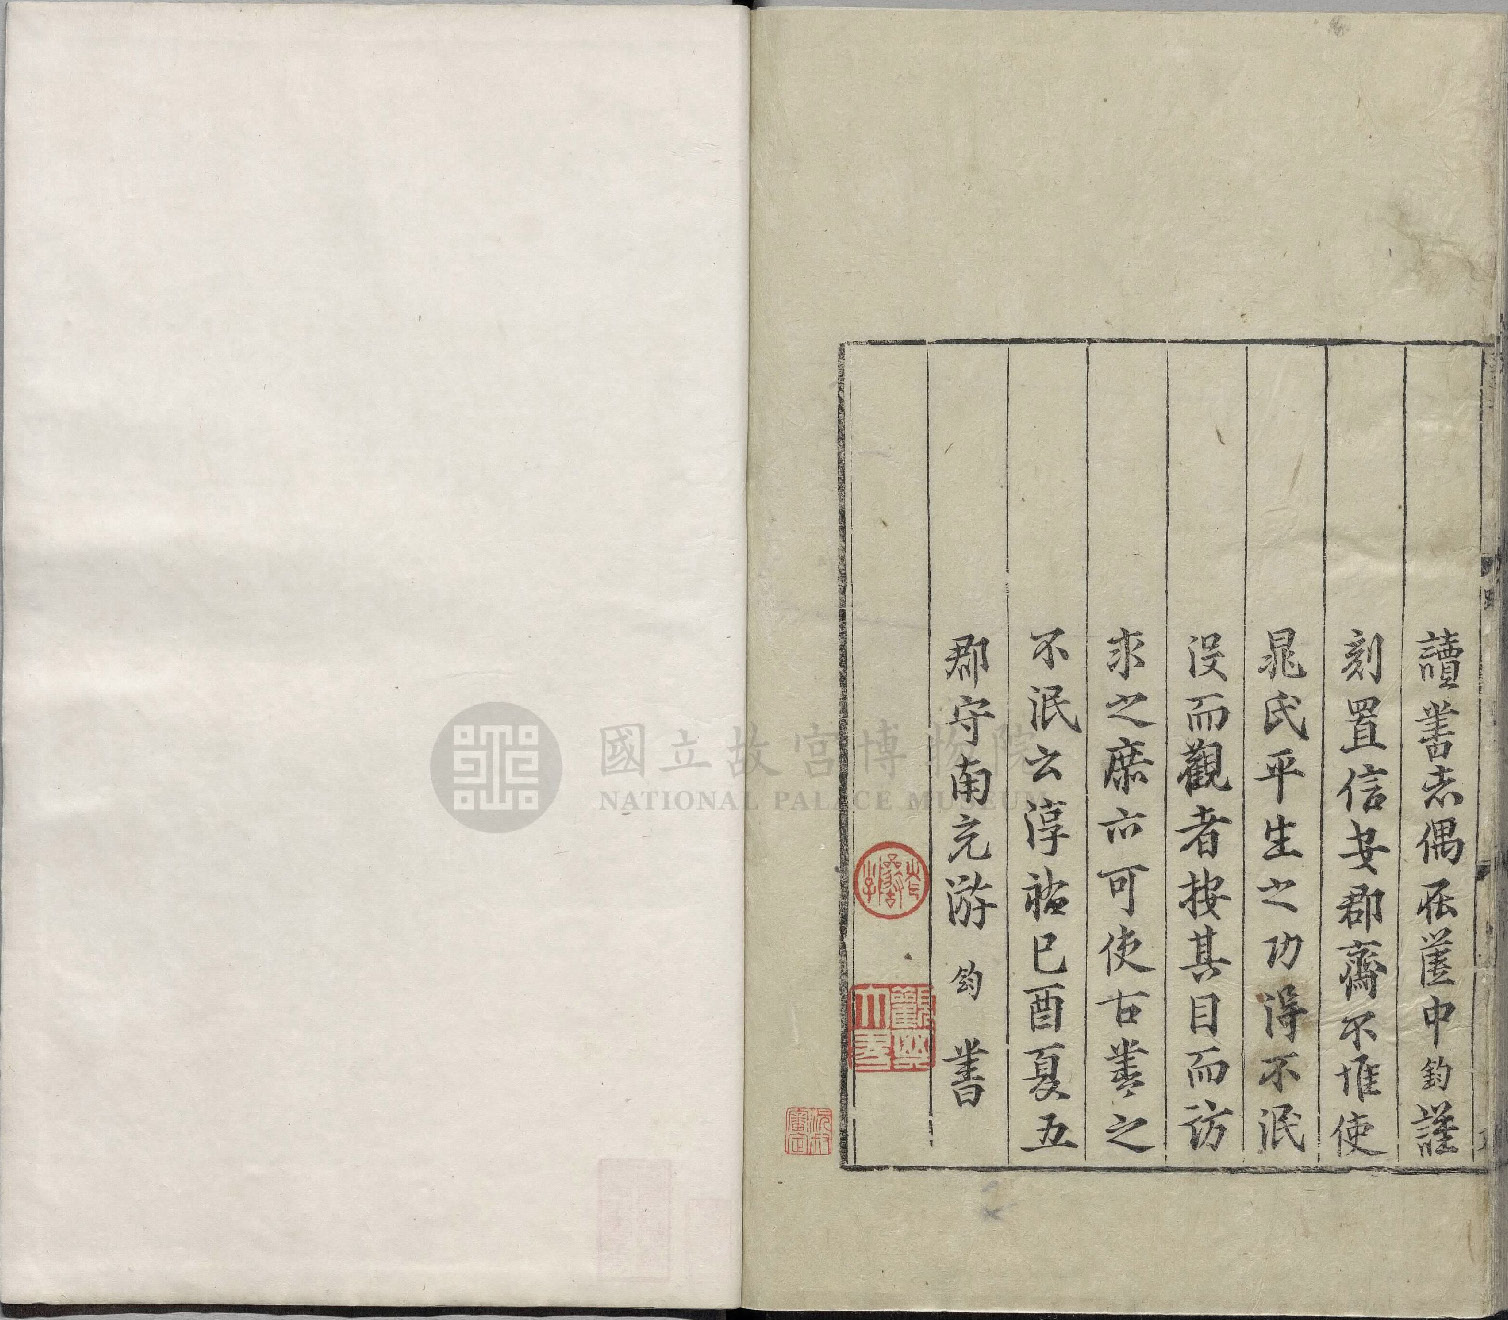 讀書志偶在箧中鈞謹
刻置信安郡齋不惟使
晁氏平生之功得不泯
沒而觀者按其目而訪
求之庶亦可使古書之
不泯云淳祐己酉夏五
郡守南充游鈞書
國立故宮博物院
NATIONAL PALACE MUSEUM